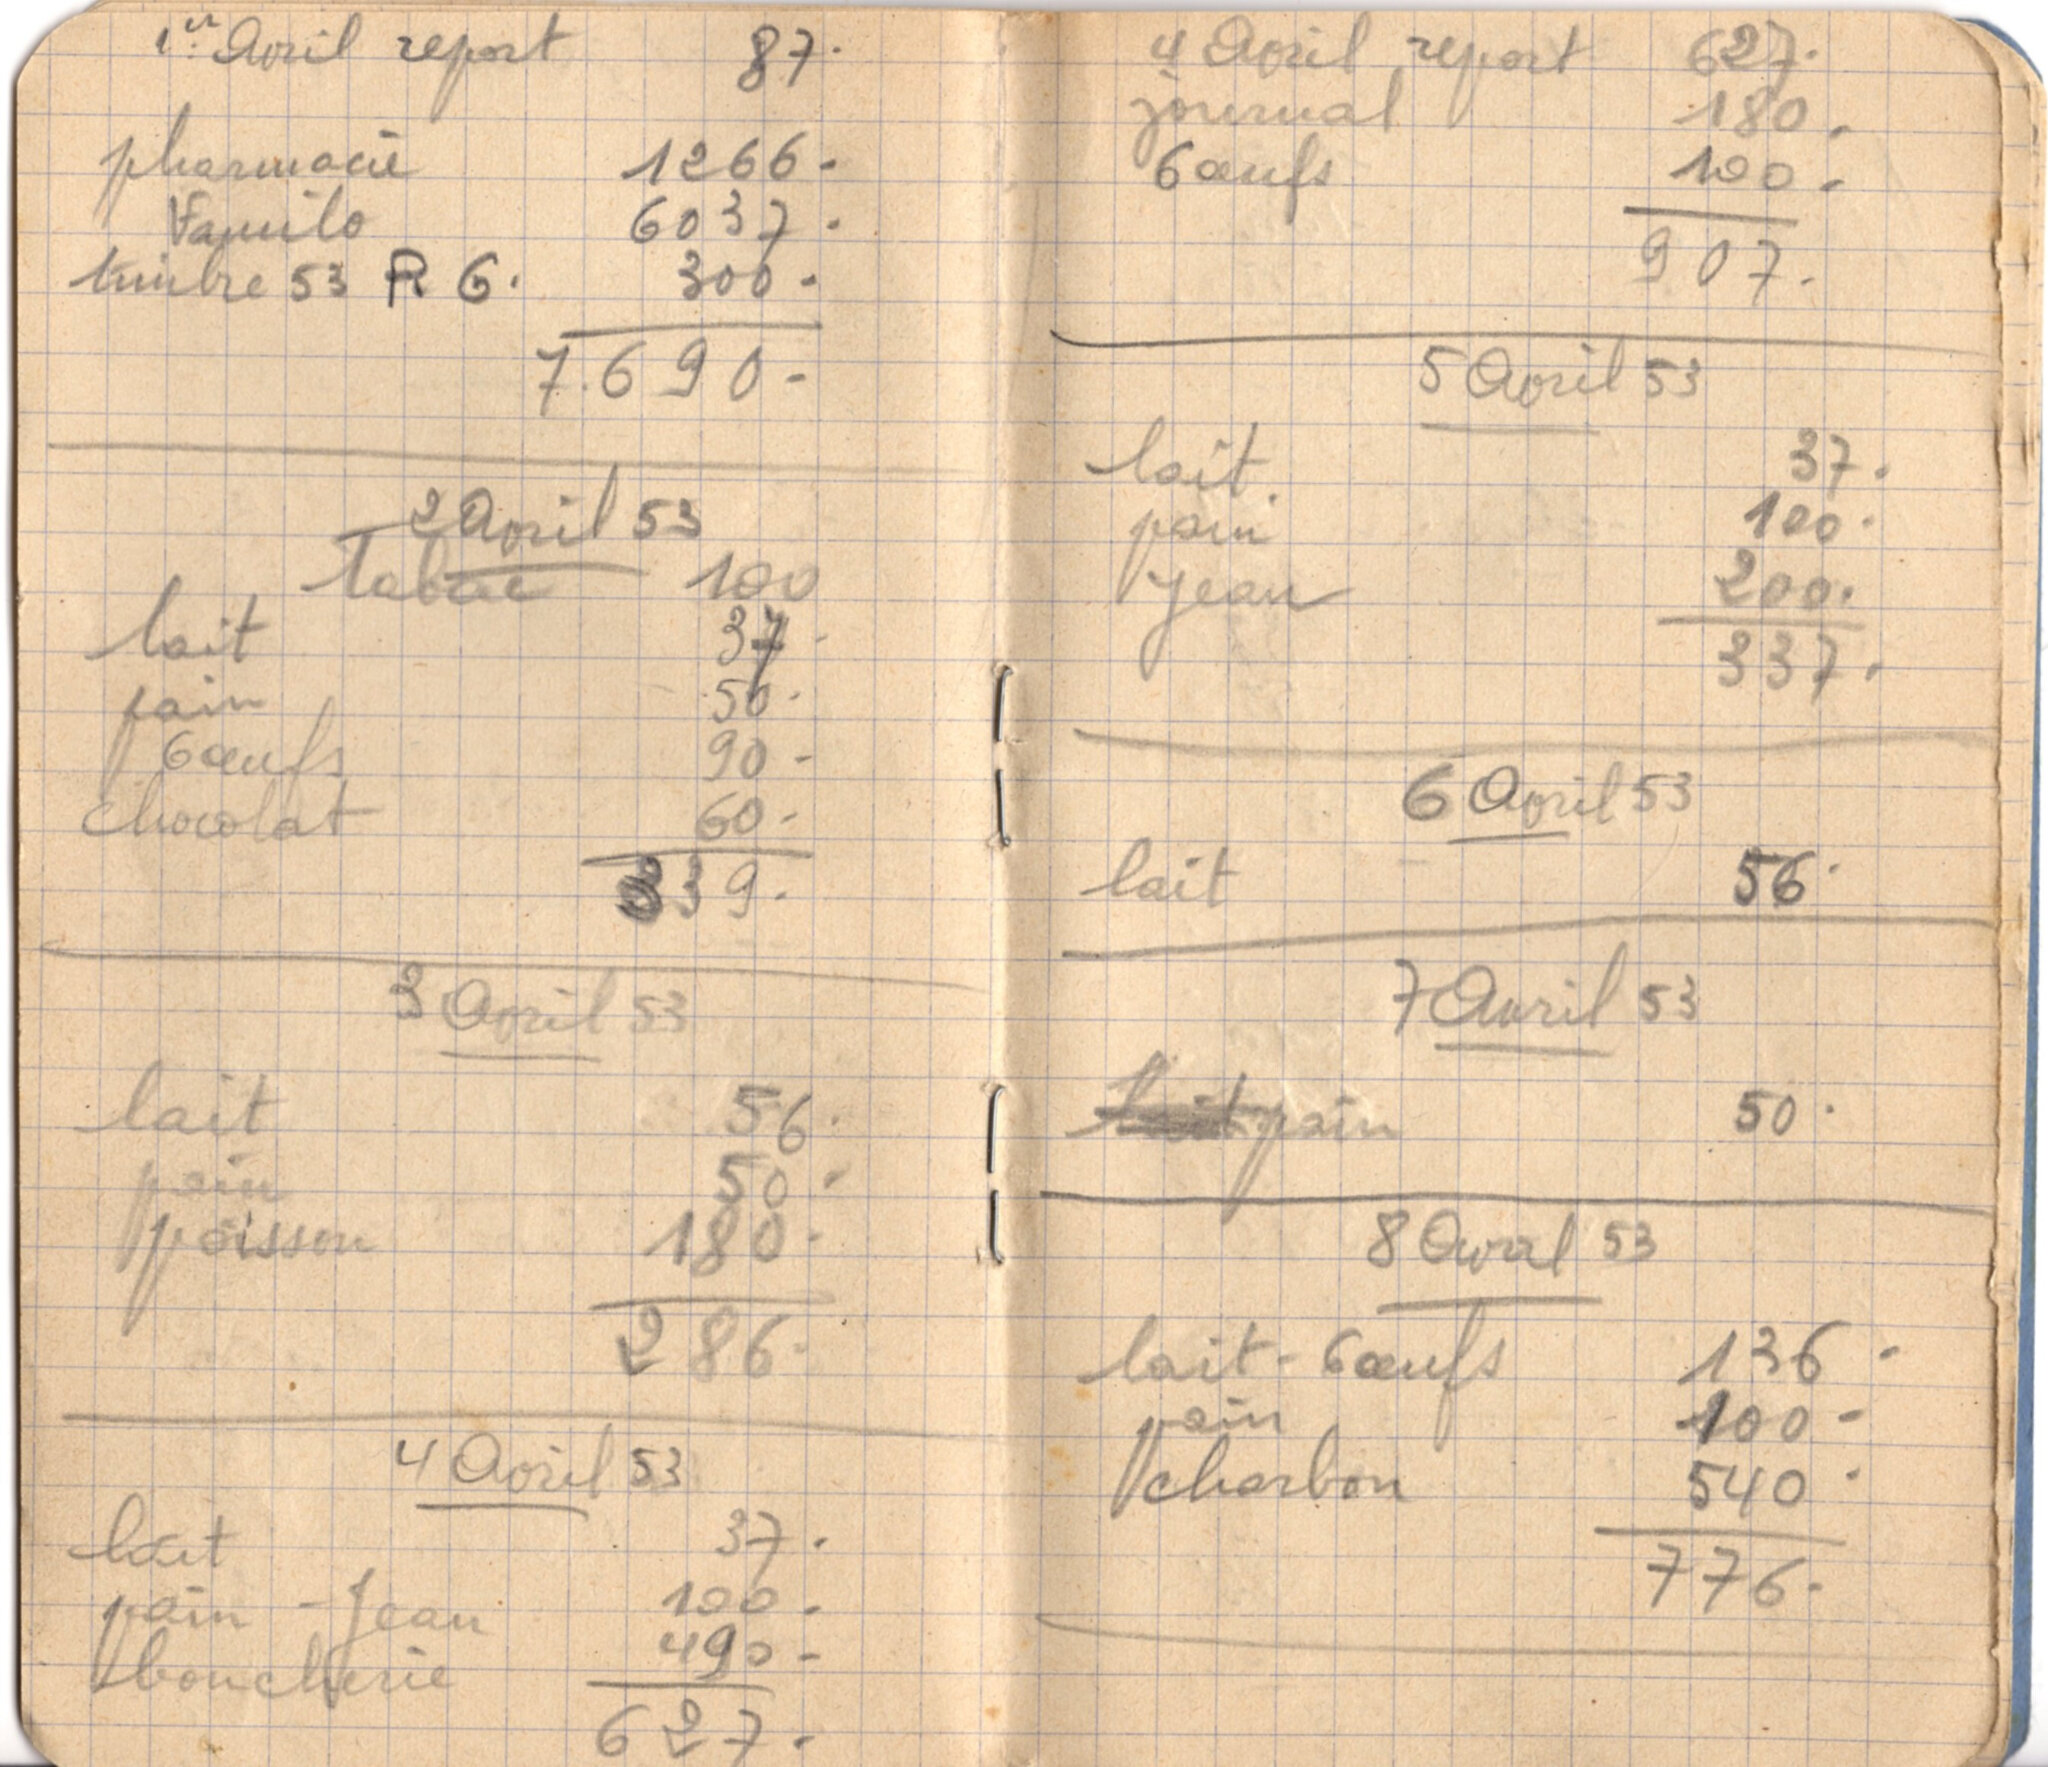 1er Avril report 87.
pharmacie 1266.
Familo 6037.
timbre 53 R G. 300.
7.690.
2 Avril 53
Tabac 100
lait 37.
pain 50.
6 œufs 90.
chocolat 60.
339.
3 Avril 53
lait 56.
pain 50.
poisson 180.
286.
4 Avril 53
lait 37.
pain - Jean 100.
boucherie 490.
627.
4 Avril report 627.
journal 180.
6 œufs 100.
907.
5 Avril 53
lait. 37.
pain 100.
Jean 200.
337.
6 Avril 53
lait 56.
7 Avril 53
lait pain 50.
8 Avril 53
lait - 6 œufs 136.
pain 100.
charbon 540.
776.